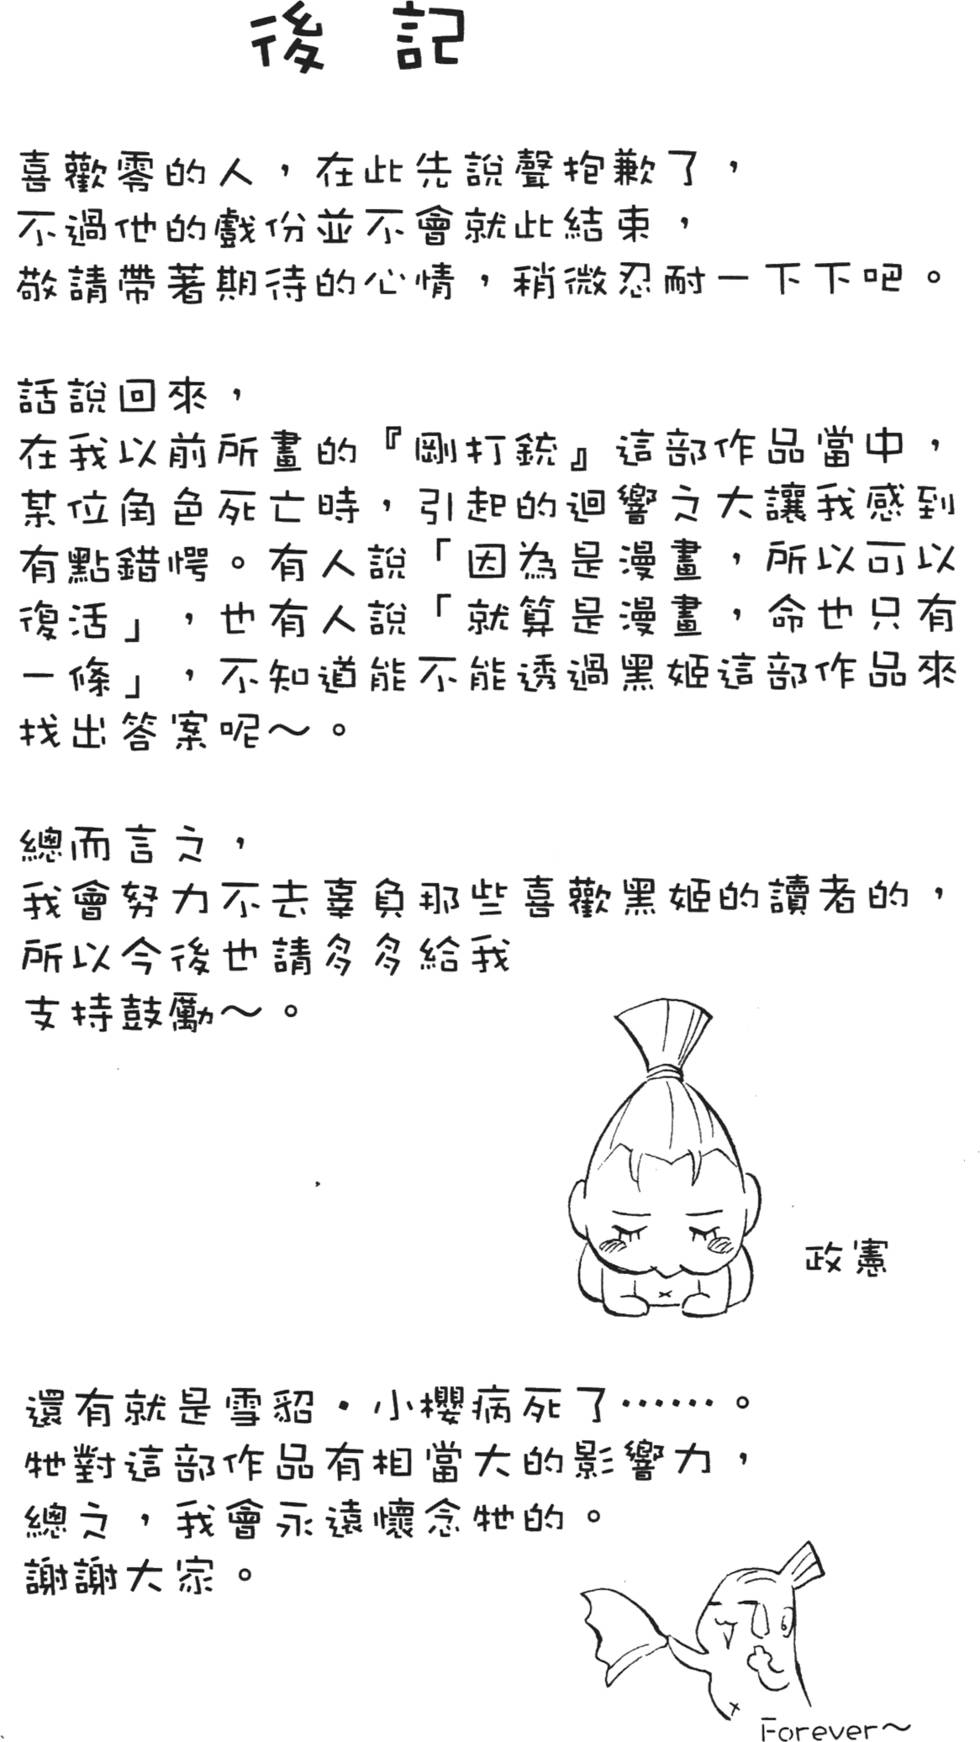 後記
喜歡零的人，在此先說聲抱歉了，
不過他的戲份並不會就此結束，
敬請帶著期待的心情，稍微忍耐一下下吧。
話說回來，
在我以前所畫的『剛打銃』這部作品當中，
某位角色死亡時，引起的迴響之大讓我感到
有點錯愕。有人說「因為是漫畫，所以可以
復活」，也有人說「就算是漫畫，命也只有
一條」，不知道能不能透過黑姬這部作品來
找出答案呢～。
總而言之，
我會努力不去辜負那些喜歡黑姬的讀者的，
所以今後也請多多給我
支持鼓勵～。
政憲
還有就是雪貂・小櫻病死了……。
牠對這部作品有相當大的影響力，
總之，我會永遠懷念牠的。
謝謝大家。
Forever～